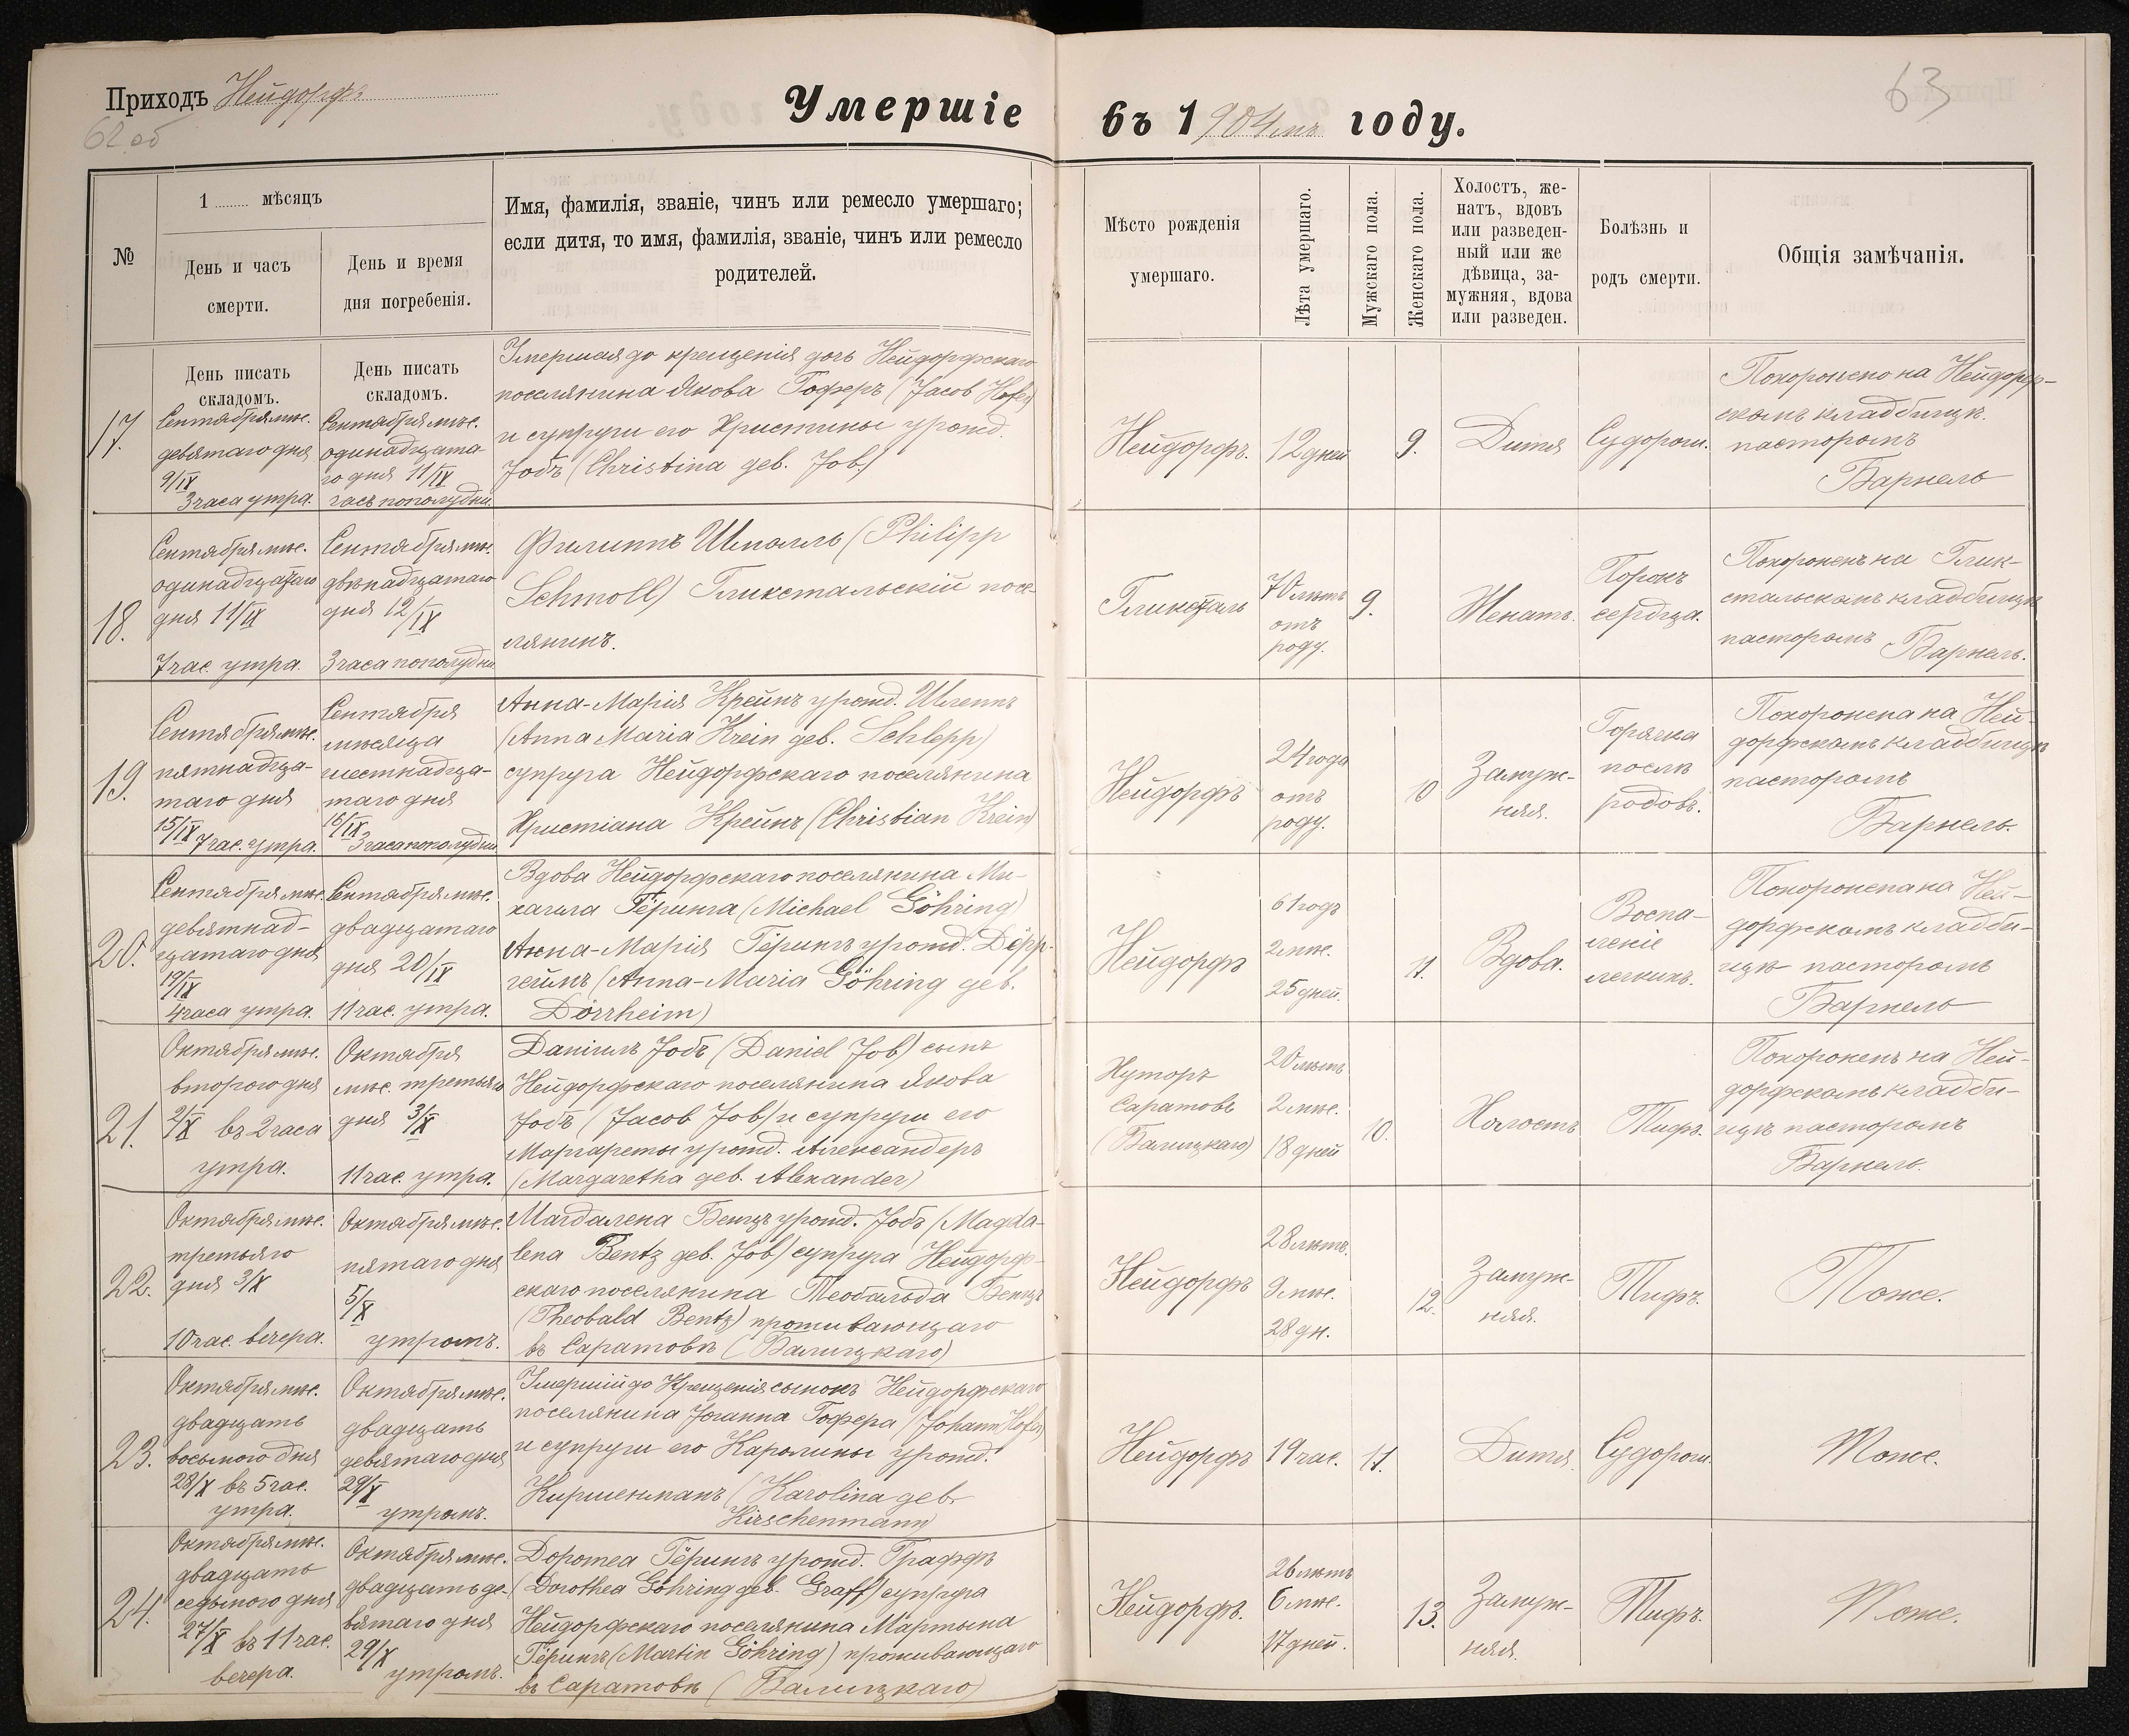 Приходъ Нейдорфъ
62 об
Умершіе
въ 1904мъ году.
63
№
1 ........ мѣсяцъ
День и часъ
смерти.
День и время
дня погребенія.
Имя, фамилія, званіе, чинъ или ремесло умершаго;
если дитя, то имя, фамилія, званіе, чинъ или ремесло
родителей.
Мѣсто рожденія
умершаго.
Лѣта умершаго.
Мужскаго пола.
Женскаго пола.
Холостъ, же-
натъ, вдовъ
или разведен-
ный или же
дѣвица, за-
мужняя, вдова
или разведен.
Болѣзнь и
родъ смерти.
Общія замѣчанія.
День писать
складомъ.
День писать
складомъ.
17.
Сентября мѣс.
девятаго дня
9/IX
3 часа утра.
Сентября мѣс.
одинадцата-
го дня 11/IX
часъ пополудни.
Умершая до крещенія дочь Нейдорфскаго
поселянина Якова Гоферъ (Jacob Hofer)
и супруги его Христины урожд.
Јобъ (Christina geb. Job.)
Нейдорфъ.
12 дней
9.
Дитя
Судорож.
Похоронено на Нейдорф-
скомъ кладбищѣ.
пасторомъ
Барнель
18.
Сентября мѣс.
одинадцатаго
дня 11/IX
7 час. утра.
Сентября мѣс.
двѣнадцатаго
дня 12/IX
3 часа пополудни
Филиппъ Шмолль (Philipp
Schmoll) Гликстальскій посе-
лянинъ.
Гликсталь
70 лѣтъ
отъ
роду.
9.
Женатъ.
Порокъ
сердца.
Похороненъ на Глик-
стальскомъ кладбищѣ
пасторомъ
Барнель.
19.
Сентября мѣс.
пятнадца-
таго дня
15/IX 7 час. утра.
Сентября
мѣсяца
шестнадца-
таго дня
16/IX
3 часа пополудни
Анна-Марія Крейнъ урожд. Шлеппъ
(Anna Maria Krein geb. Schlepp)
супруга Нейдорфскаго поселянина
Христіана Крейнъ (Christian Krein)
Нейдорфъ
24 года
отъ
роду.
10
Замуж-
няя.
Горячка
послѣ
родовъ.
Похоронена на Ней-
дорфскомъ кладбищѣ
пасторомъ
Барнель.
20.
Сентября мѣс.
девятнад-
цатаго дня
19/IX
4 часа утра.
Сентября мѣс.
двадцатаго
дня 20/IX
11 час. утра.
Вдова Нейдорфскаго поселянина Ми-
хаила Гёринга (Michael Göhring)
Анна-Марія Гёрингъ урожд. Дёрр-
геймъ (Anna-Maria Göhring geb.
Dörrheim)
Нейдорфъ
61 годъ
2 мѣс.
25 дней.
11.
Вдова.
Воспа-
леніе
легкихъ.
Похоронена на Ней-
дорфскомъ кладби-
щѣ пасторомъ
Барнель
21.
Октября мѣс.
второго дня
2/X въ 2 часа
утра.
Октября
мѣс. третьяго
дня 3/X
11 час. утра.
Даніилъ Јобъ (Daniel Job) сынъ
Нейдорфскаго поселянина Якова
Јобъ (Jacob Job) и супруги его
Маргареты урожд. Александеръ
(Margaretha geb. Alexander)
Хуторъ
Саратовъ
(Балицкаго)
20 лѣтъ
2 мѣс.
18 дней
10.
Холостъ
Тифъ.
Похороненъ на Ней-
дорфскомъ кладби-
щѣ пасторомъ
Барнель.
22.
Октября мѣс.
третьяго
дня 3/X
10 час. вечера.
Октября мѣс.
пятаго дня
5/X
утромъ.
Магдалена Бенцъ урожд. Јобъ (Magda-
lena Bentz geb. Job) супруга Нейдорф-
скаго поселянина Теобальда Бенцъ
(Theobald Bentz) проживающаго
въ Саратовѣ (Балицкаго)
Нейдорфъ
28 лѣтъ.
9 мѣс.
28 дн.
12.
Замуж-
няя.
Тифъ.
Тоже.
23.
Октября мѣс.
двадцать
восьмого дня
28/X въ 5 час.
утра.
Октября мѣс.
двадцать
девятаго дня
29/X
утромъ.
Умершій до Крещенія сынокъ Нейдорфскаго
поселянина Јоганна Гофера (Johann Hofer)
и супруги его Каролины урожд.
Киршенманъ (Karolina geb.
Kirschenmann)
Нейдорфъ
19 час.
11.
Дитя.
Судорож.
Тоже.
24.
Октября мѣс.
двадцать
седьмого дня
27/X въ 11 час.
вечера.
Октября мѣс.
двадцать де-
вятаго дня
29/X
утромъ.
Доротеа Гёрингъ урожд. Граффъ
(Dorothea Göhring geb. Graff) супруга
Нейдорфскаго поселянина Мартына
Гёрингъ (Martin Göhring) проживающаго
въ Саратовѣ (Балицкаго)
Нейдорфъ.
26 лѣтъ
6 мѣс.
17 дней.
13.
Замуж-
няя.
Тифъ.
Тоже.